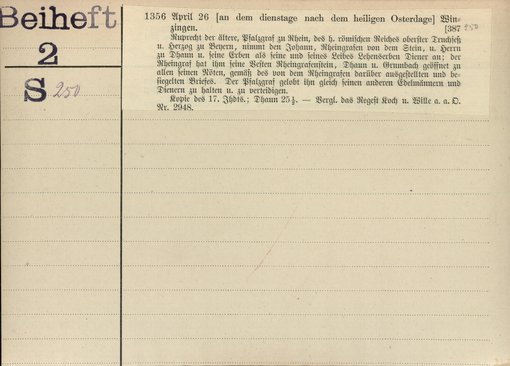 Beiheft
2
S 250
1356 April 26 [an dem dienstage nach dem heiligen Osterdage] Win-
zingen. [387 250
Ruprecht der ältere, Pfalzgraf zu Rhein, des h. römischen Reiches oberster Truchseß
u. Herzog zu Beyern, nimmt den Johann, Rheingrafen von dem Stein, u. Herrn
zu Dhaun u. seine Erben als seine und seines Leibes Lehenserben Diener an; der
Rheingraf hat ihm seine Vesten Rheingrafenstein, Dhaun u. Grumbach geöffnet zu
allen seinen Nöten, gemäß des von dem Rheingrafen darüber ausgestellten und be-
siegelten Briefes. Der Pfalzgraf gelobt ihn gleich seinen anderen Edelmännern und
Dienern zu halten u. zu verteidigen.
Kopie des 17. Jhdts.; Dhaun — Vergl. das Regest Koch u. Wille a. a. O.
Nr. 2948.